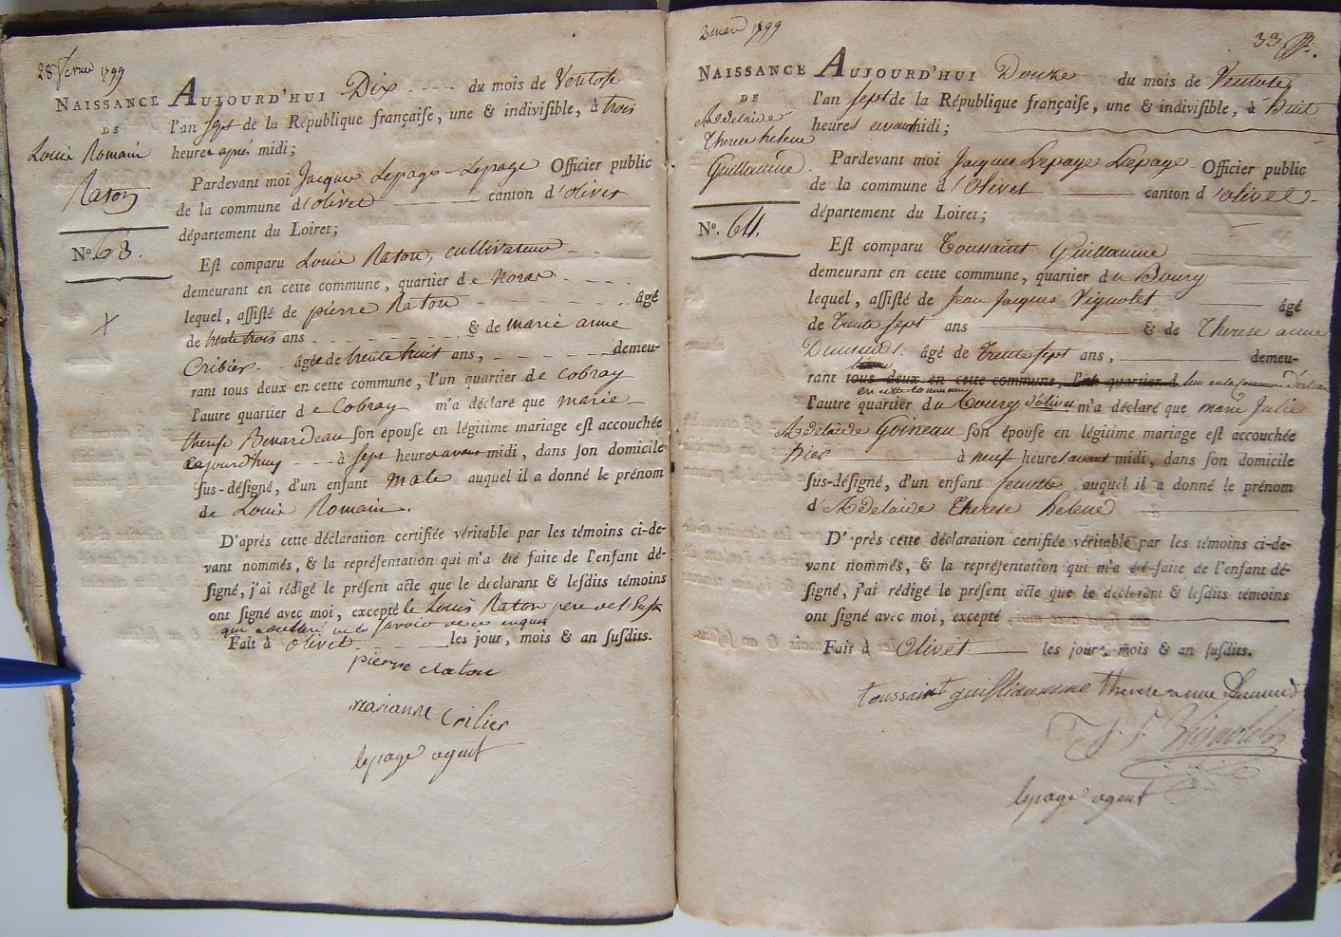 28 1799
NAISSANCE
DE
Louis Romain
Raton
N.º 63.
AUJOURD'HUI Dix du mois de Ventose
l'an sept de la République française, une & indivisible, à trois
heures après midi;
Pardevant moi Jacques Lepage Lepage Officier public
de la commune d'olivet canton d'olivet
département du Loiret;
Est comparu Louis Raton, cultivateur
demeurant en cette commune, quartier de
lequel, assisté de pierre Raton âgé
de trente trois ans & de marie anne
Cribier âgée de trente huit ans, demeu-
rant tous deux en cette commune, l'un quartier de Cobray
l'autre quartier de Cobray m'a déclaré que marie
therese Renardeau son épouse en légitime mariage est accouchée
aujourdhuy à sept heures avant midi, dans son domicile
sus-désigné, d'un enfant male auquel il a donné le prénom
de Louis Romain.
D'après cette déclaration certifiée véritable par les témoins ci-de-
vant nommés, & la représentation qui m'a été faite de l'enfant dé-
signé, j'ai rédigé le présent acte que le déclarant & lesdits témoins
ont signé avec moi, excepté le Louis Raton pere de l'
qui a declaré ne le savoir de ce enquis
Fait à olivet les jour, mois & an susdits.
pierre raton
marianne Cribier
lepage agent
2 mars 1799
33
NAISSANCE
DE
Adelaide
Therese helene
Guillaume
N.º 64.
AUJOURD'HUI Douze du mois de Ventose
l'an sept de la République française, une & indivisible, à huit
heures avant midi;
Pardevant moi Jacques Lepage Lepage Officier public
de la commune d'Olivet canton d'olivet
département du Loiret;
Est comparu Toussaint Guillaume
demeurant en cette commune, quartier du Bourg
lequel, assisté de Jean Jacques Vignolet âgé
de trente sept ans & de Therese anne
âgé de trente sept ans, demeu-
rant tous deux en cette commune, l'un quartier d
en cette commune
l'autre quartier du Bourg d'olivet m'a déclaré que marie Julie
Adelaide Goineau son épouse en légitime mariage est accouchée
hier à neuf heures avant midi, dans son domicile
sus-désigné, d'un enfant femelle auquel il a donné le prénom
d'Adelaide Therese helene
D'après cette déclaration certifiée véritable par les témoins ci-de-
vant nommés, & la représentation qui m'a été faite de l'enfant dé-
signé, j'ai rédigé le présent acte que le déclarant & lesdits témoins
ont signé avec moi, excepté
Fait à Olivet les jour, mois & an susdits.
toussaint guilliaumme therese anne
J. J.
lepage agent